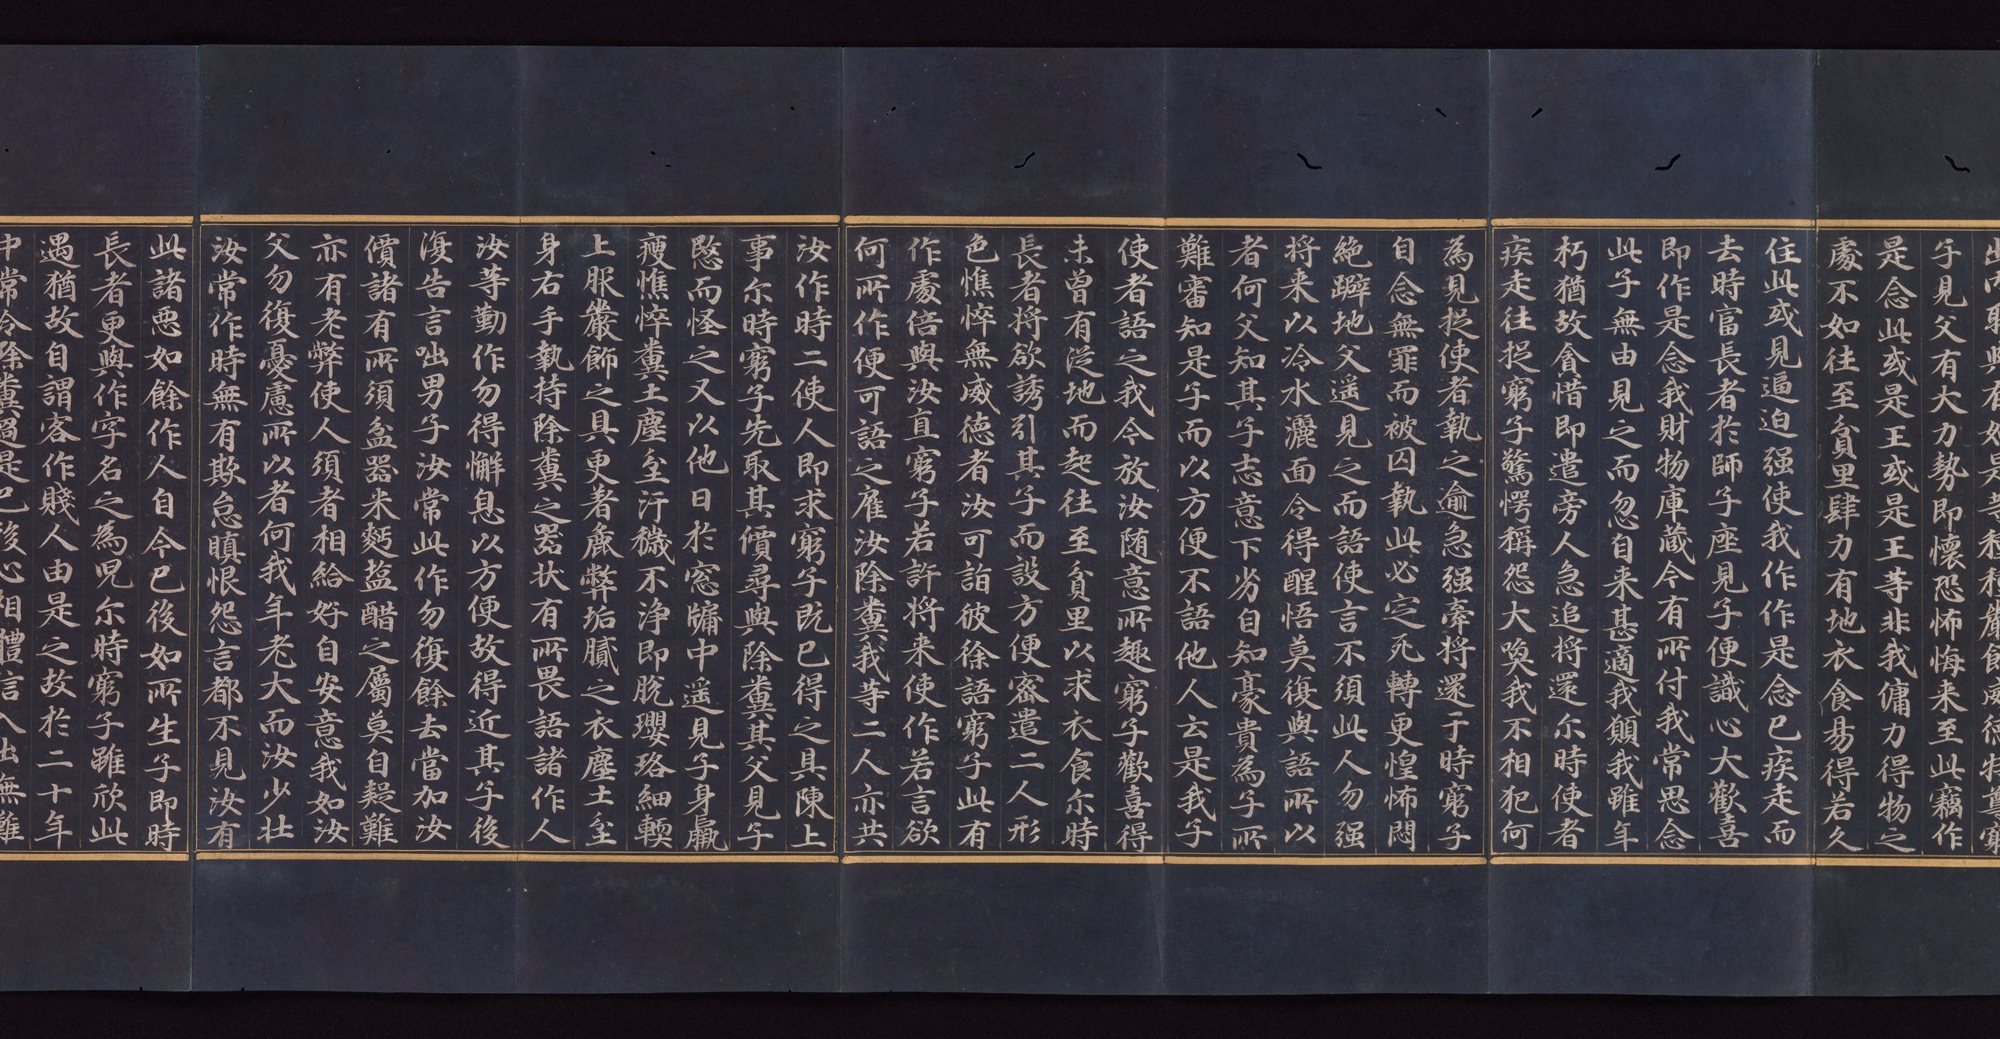 出内取與有如是等種種嚴飾威德特尊窮
子見父有大力勢即懷恐怖悔来至此竊作
是念此或是王或是王等非我傭力得物之
處不如往至貧里肆力有地衣食易得若久
住此或見逼迫强使我作作是念已疾走而
去時富長者於師子座見子便識心大歡喜
即作是念我財物庫蔵今有所付我常思念
此子無由見之而忽自来甚適我願我雖年
朽猶故貪惜即遣旁人急追将還尒時使者
疾走往捉窮子驚愕稱怨大喚我不相犯何
為見捉使者執之逾急强牽将還于時窮子
自念無罪而被囚執此必定死轉更惶怖悶
絶躃地父遥見之而語使言不須此人勿强
将来以冷水灑面令得醒悟莫復與語所以
者何父知其子志意下劣自知豪貴為子所
難審知是子而以方便不語他人云是我子
使者語之我今放汝随意所趣窮子歡喜得
未曾有従地而起往至貧里以求衣食尒時
長者将欲誘引其子而設方便密遣二人形
色憔悴無威徳者汝可詣彼徐語窮子此有
作處倍與汝直窮子若許将来使作若言欲
何所作便可語之雇汝除糞我等二人亦共
汝作時二使人即求窮子既已得之具陳上
事尒時窮子先取其價尋與除糞其父見子
愍而怪之又以他日於窓牖中遥見子身羸
瘦憔悴糞土塵坌汙穢不浄即脫瓔珞細輭
上服嚴飾之具更著麁弊垢膩之衣塵土坌
身右手執持除糞之器状有所畏語諸作人
汝等勤作勿得懈息以方便故得近其子後
復告言咄男子汝常此作勿復餘去當加汝
價諸有所須盆器米麪盐醋之屬莫自疑難
亦有老弊使人須者相給好自安意我如汝
父勿復憂慮所以者何我年老大而汝少壮
汝常作時無有欺怠瞋恨怨言都不見汝有
此諸悪如餘作人自今已後如所生子即時
長者更與作字名之為兒尒時窮子雖欣此
遇猶故自謂客作賤人由是之故於二十年
中常令除糞過是已後心相體信入出無難